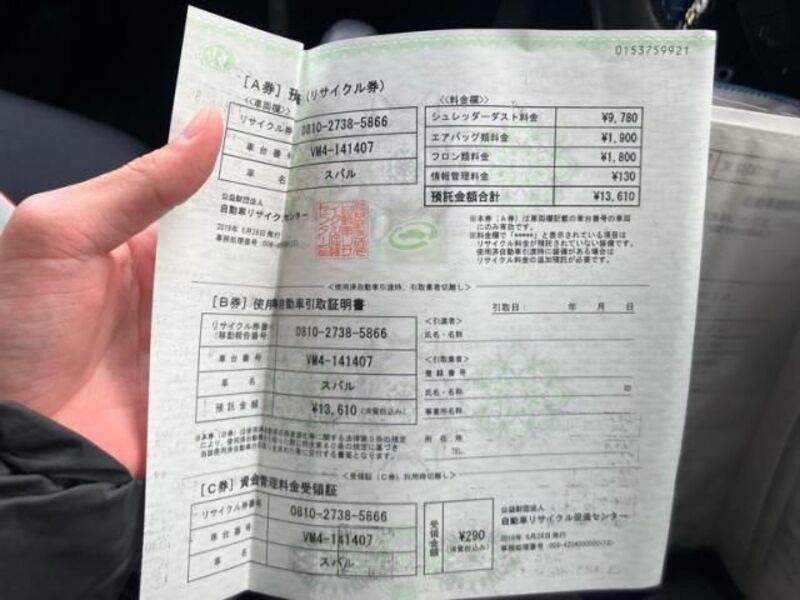 0153759921
[A券] 預 (リサイクル券)
≪車両欄≫
リサイクル券 0810-2738-5866
車台番号 VM4-141407
車 名 スバル
公益財団法人
自動車リサイクル センター
2019年 6月28日発行
≪料金欄≫
シュレッダーダスト料金 ¥9,780
エアバッグ類料金 ¥1,900
フロン類料金 ¥1,800
情報管理料金 ¥130
預託金額合計 ¥13,610
※本券(A券)は車両欄記載の車台番号の車両
にのみ有効です。
※料金欄で「*****」と表示されている項目は
リサイクル料金が預託されていない装備です。
使用済自動車引渡時に装備がある場合は
リサイクル料金の追加預託が必要です。
<使用済自動車引渡時、引取業者切離し>
[B券] 使用 自動車引取証明書
引取日: 年 月 日
リサイクル券番
(移動報告番号) 0810-2738-5866
車台番号 VM4-141407
車 名 スバル
預託金額 ¥13,610 (消費税込み)
<引渡者>
氏名・名称
<引取業者>
登録番号
氏名・名称 印
事業所名称
所在地
TEL
<受領証(C券)利用時切離し>
[C券] 資金管理料金受領証
リサイクル券番号 0810-2738-5866
車台番号 VM4-141407
車 名 スバル
受領金額 ¥290
(消費税込み)
公益財団法人
自動車リサイクル促進センター
2019年 6月28日発行